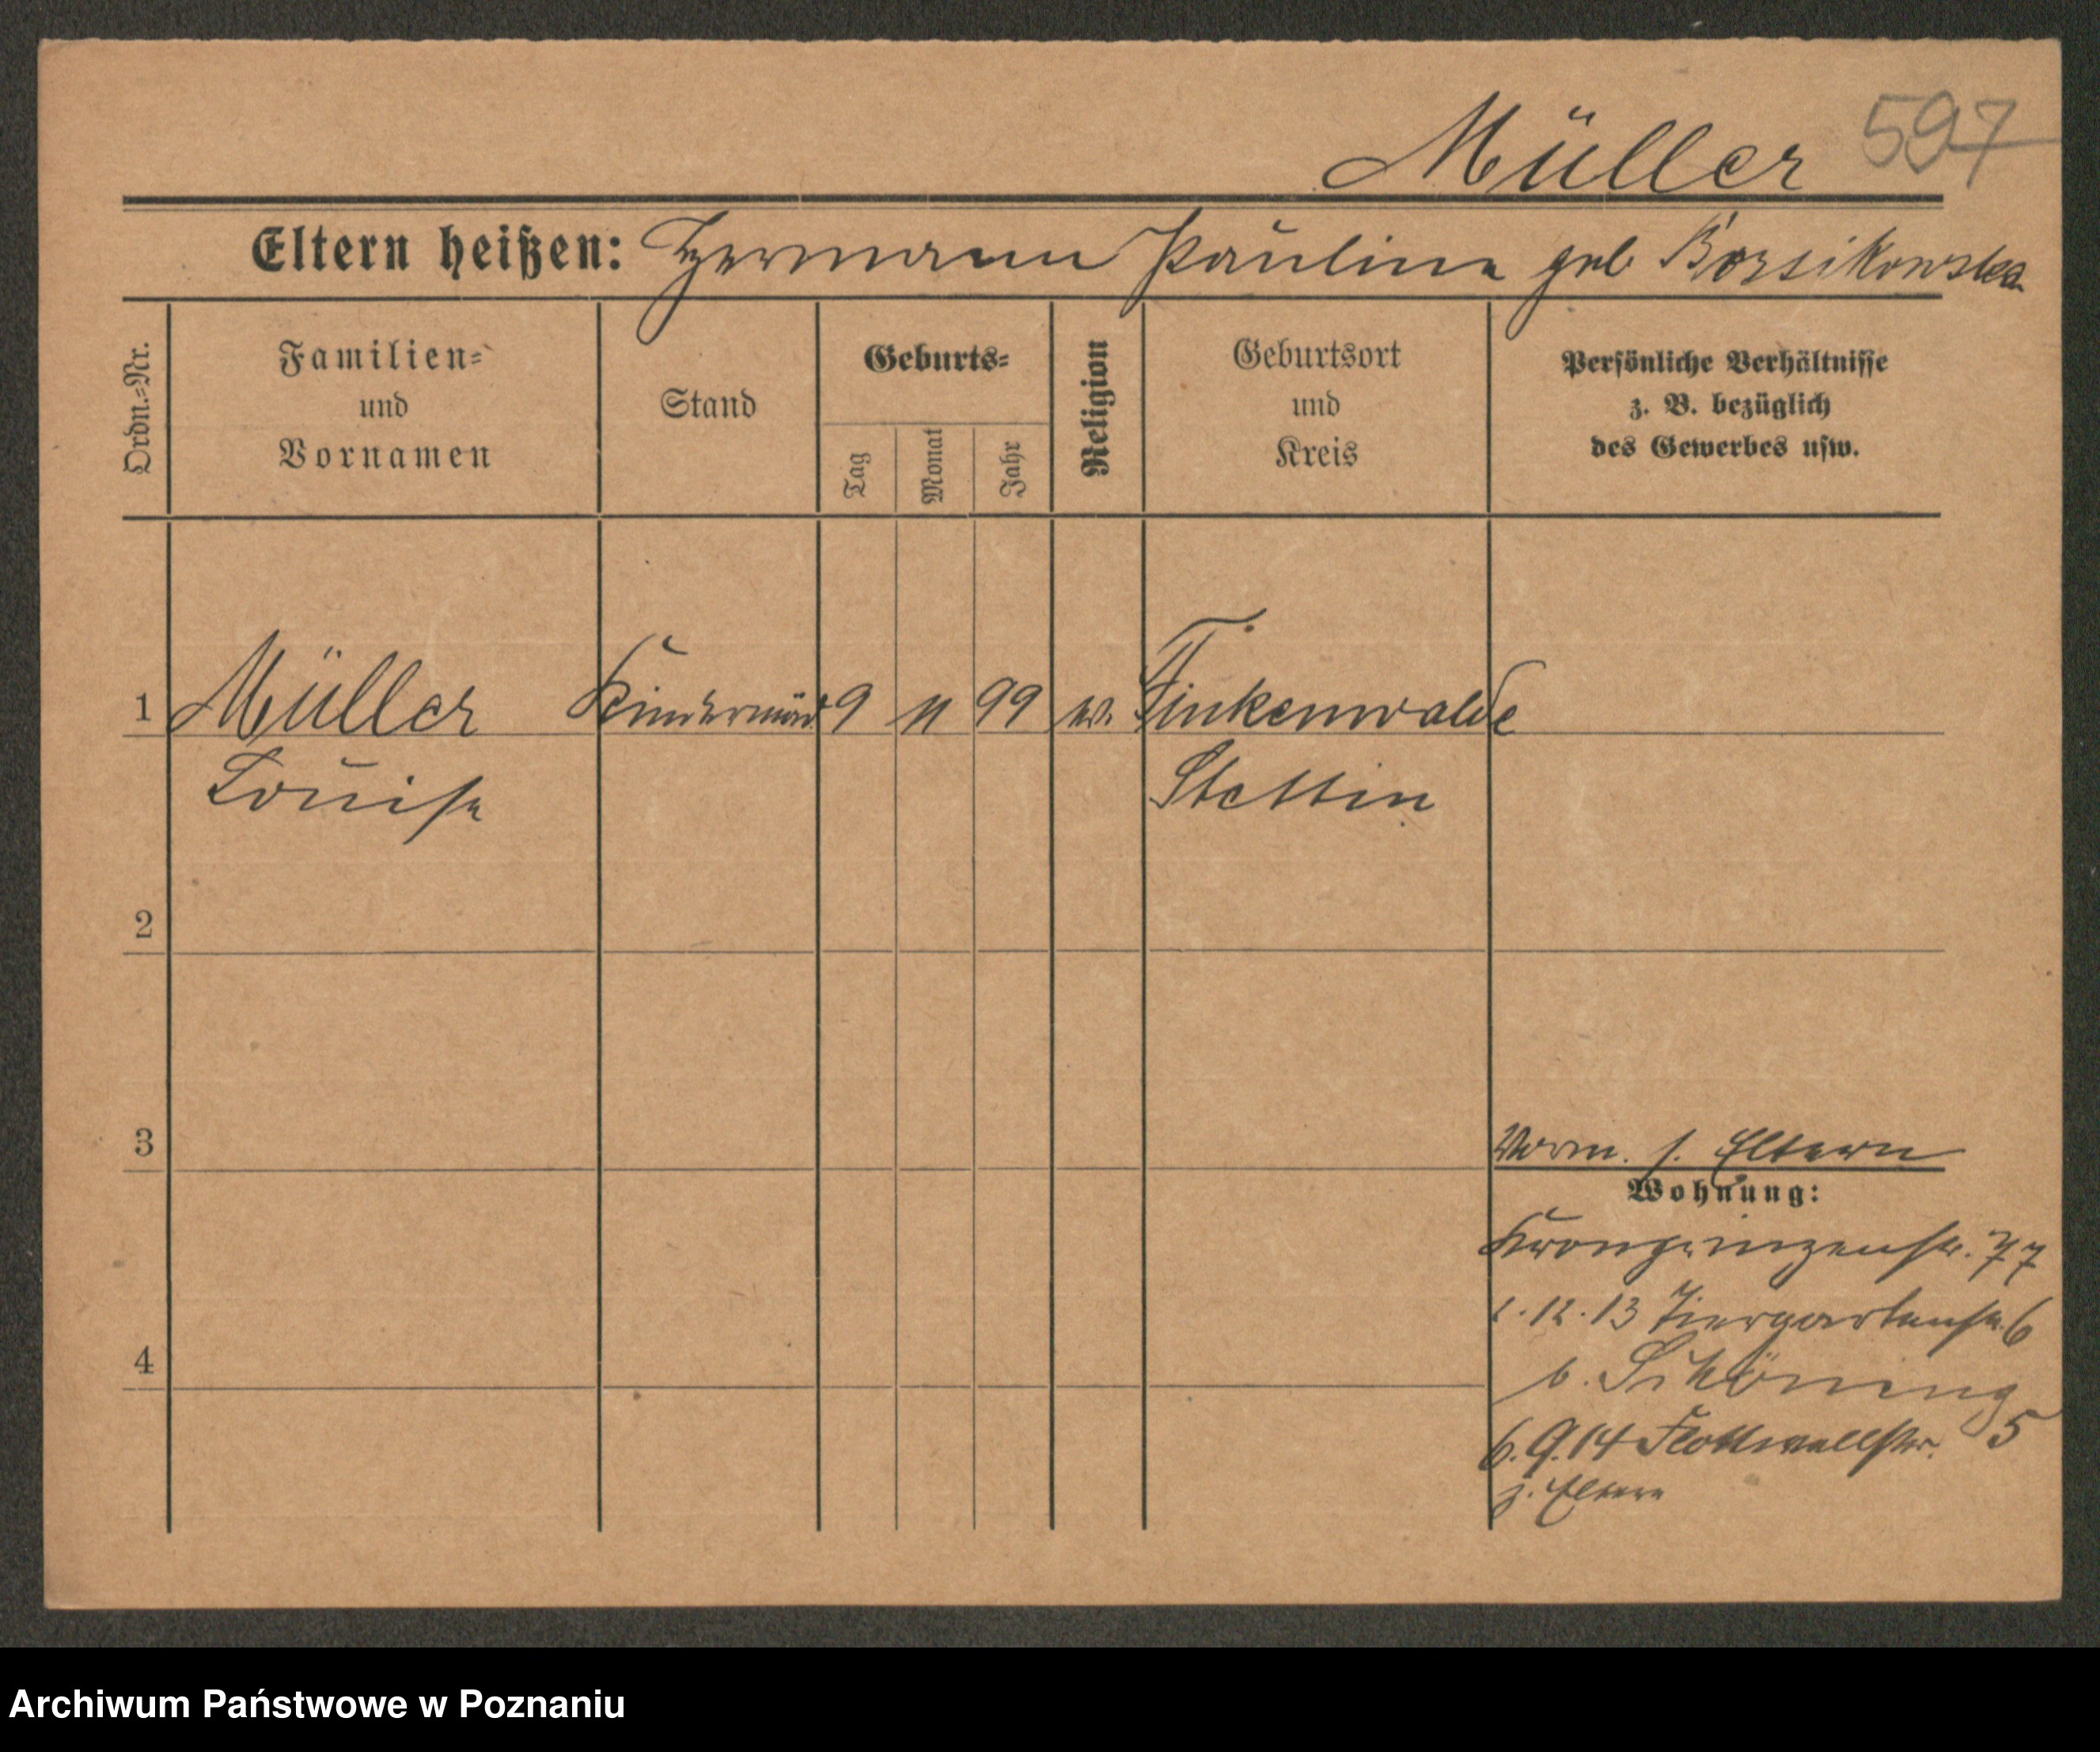 Müller 597
Eltern heißen: Hermann Pauline geb Borsikowska
Ordn.=Nr.
Familien=
und
Vornamen
Stand
Geburts=
Tag
Monat
Jahr
Religion
Geburtsort
und
Kreis
Persönliche Verhältnisse
z. B. bezüglich
des Gewerbes usw.
1 Müller Kindermäd. 9 11 99 ev. Finkenwalde
Louise Stettin
2
3
Vorm. s. Eltern
Wohnung:
Kronprinzenstr. 77
1.12.13 Tiergartenstr. 6
b. Schöning
4
6.9.14 Flottwellstr. 5
z. Eltern
Archiwum Państwowe w Poznaniu